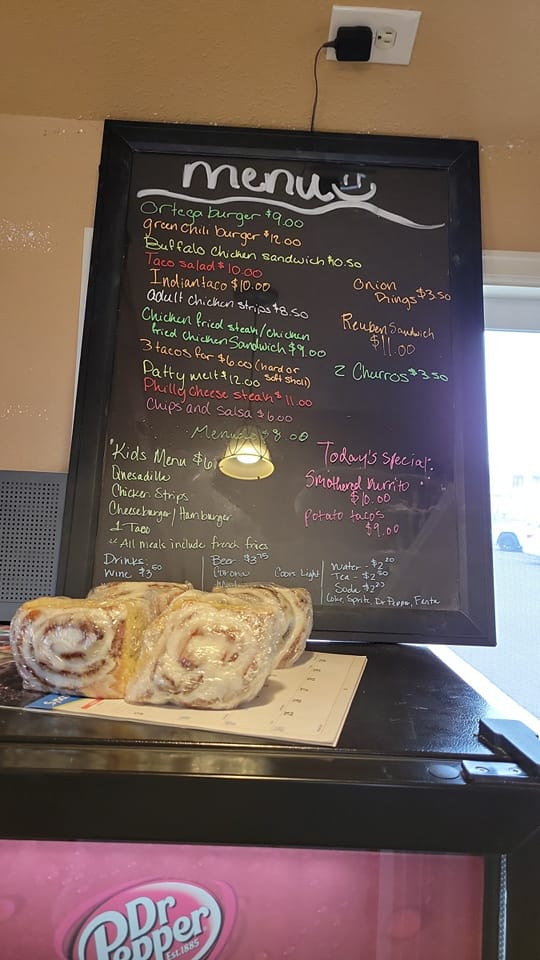 menu
Ortega burger $9.00
green chili burger $12.00
Buffalo chicken sandwich $10.50
Taco salad $10.00
Indian taco $10.00
adult chicken strips $8.50
Chicken fried steak/chicken
fried chicken Sandwich $9.00
3 tacos for $6.00 (hard or
soft shell)
Patty melt $12.00
Philly cheese steak $11.00
Chips and salsa $6.00
Onion
Rings $3.50
Reuben Sandwich
$11.00
2 Churros $3.50
$8.00
Kids Menu $6
Quesadilla
Chicken Strips
Cheeseburger/Hamburger
1 Taco
All meals include french fries
Today's Special:
Smothered burrito
$10.00
potato tacos
$9.00
Drinks:
Wine $3.50
Beer $3.75
Corona
Coors Light
Water - $2
Tea - $2.50
Soda - $2
Coke, Sprite, Dr Pepper, Fanta
Dr
Pepper
Est. 1885